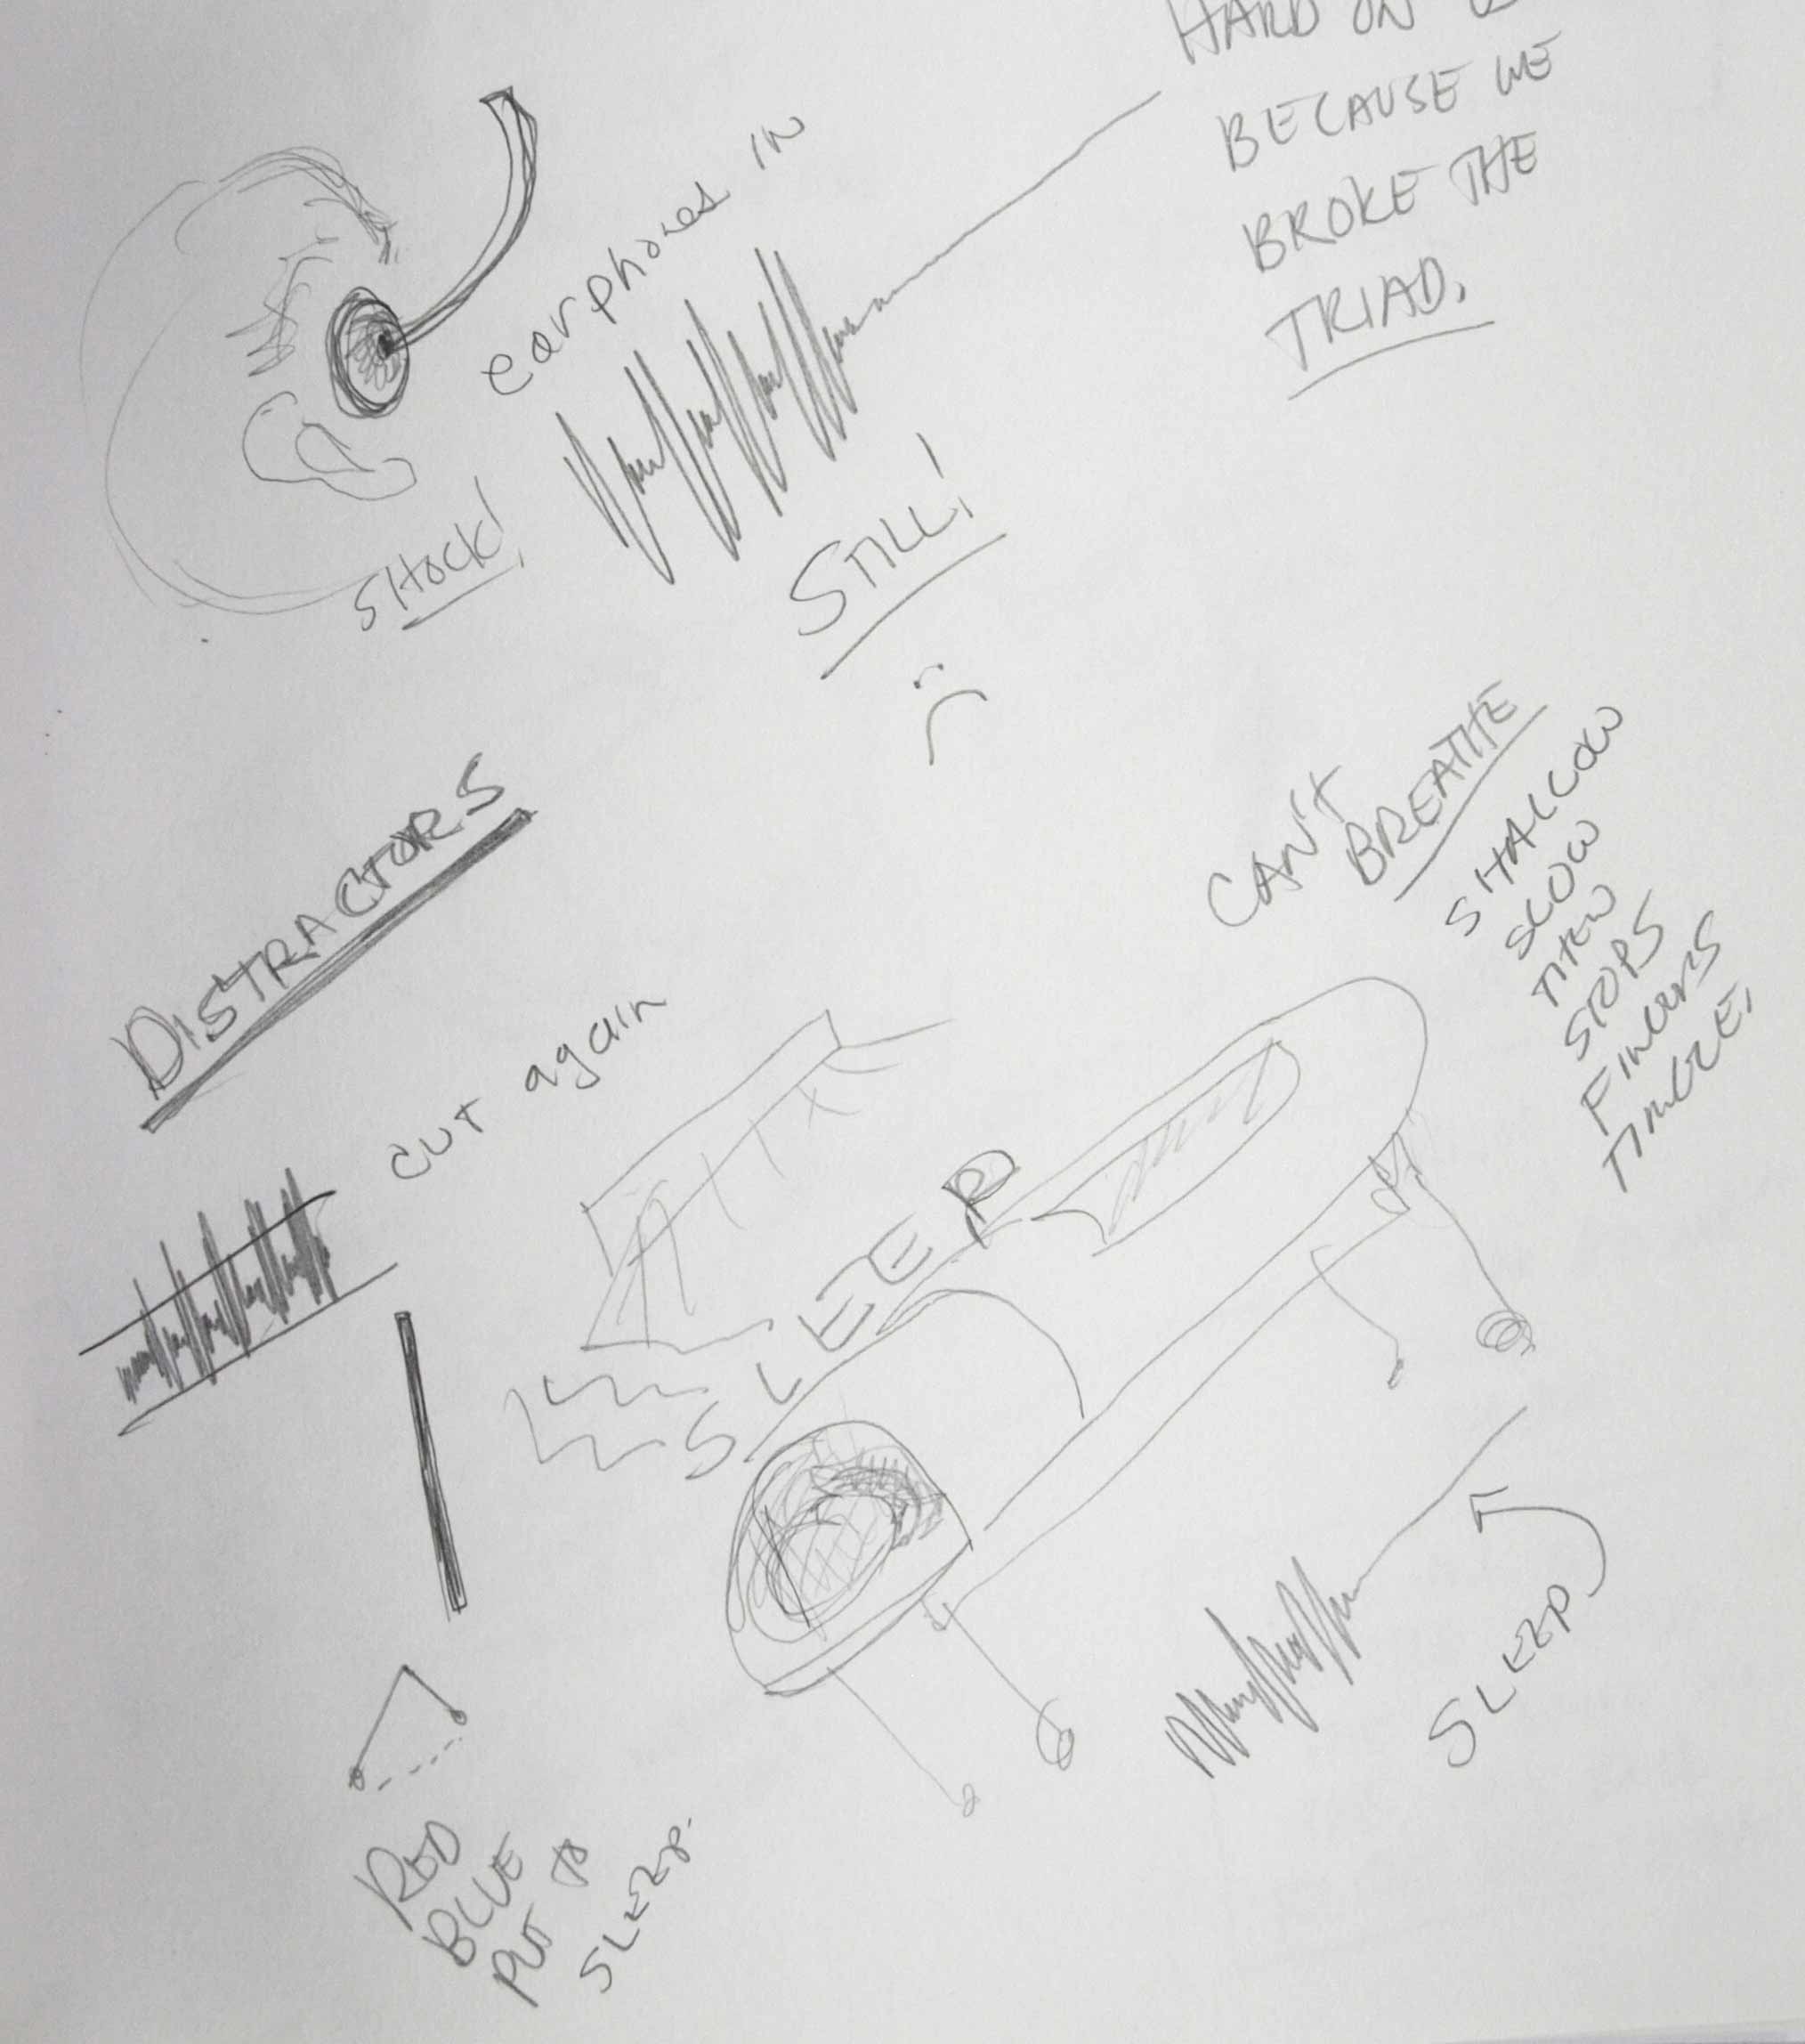 HARD ON
BECAUSE WE
BROKE THE
TRIAD.
earphones in
SHOCK!
STILL!
DISTRACTORS
CAN'T
BREATHE
SHALLOW
SLOW
THEN
STOPS
FINGERS
TINGLE.
CUT again
SLEEP
SLEEP.
RED
BLUE
PUT to
SLEEP.